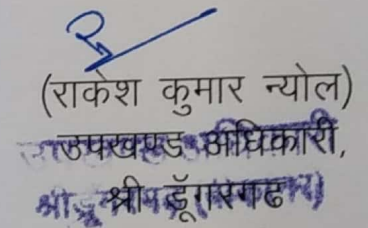 (राकेश कुमार न्योल)
उपखण्ड अधिकारी,
श्री डूॅगरगढ